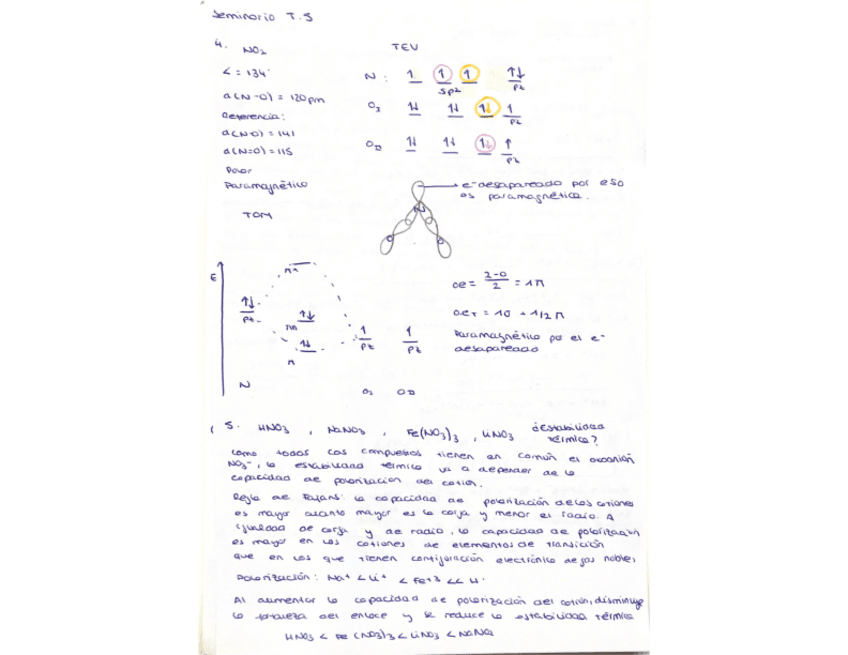 Seminario T.5
4. NO2
TEV
∠ = 134°
N: 1 1 1 1↓
sp2 pz
d(N-O) = 120pm
Referencia:
O1 1↓ 1↓ 1↓ 1
pz
d(N-O) = 141
d(N=O) = 115
O2 1↓ 1↓ 1↓ 1
pz
Polar
Paramagnético
e- desapareado por eso
es paramagnético.
TOM
N
O O
E
π*
oe = 2-0/2 = 1π
1↓
pz
πn 1↓
oeT = 1σ + 1/2 π
1 1
pz pz
1↓
π
Paramagnético por el e-
desapareado
N O1 O2
5. HNO3, NaNO3, Fe(NO3)3, LiNO3 ¿Estabilidad
térmica?
Como todos los compuestos tienen en común el oxoanión
NO3-, la estabilidad térmica va a depender de la
capacidad de polarización del catión.
Regla de Fajans: la capacidad de polarización de los cationes
es mayor cuanto mayor es la carga y menor el radio. A
igualdad de carga y de radio, la capacidad de polarización
es mayor en los cationes de elementos de transición
que en los que tienen configuración electrónica de gas noble,
Polarización: Na+ < Li+ < Fe+3 << H+
Al aumentar la capacidad de polarización del catión, disminuye
la fortaleza del enlace y se reduce la estabilidad térmica
HNO3 < Fe (NO3)3 < LiNO3 < NaNO3